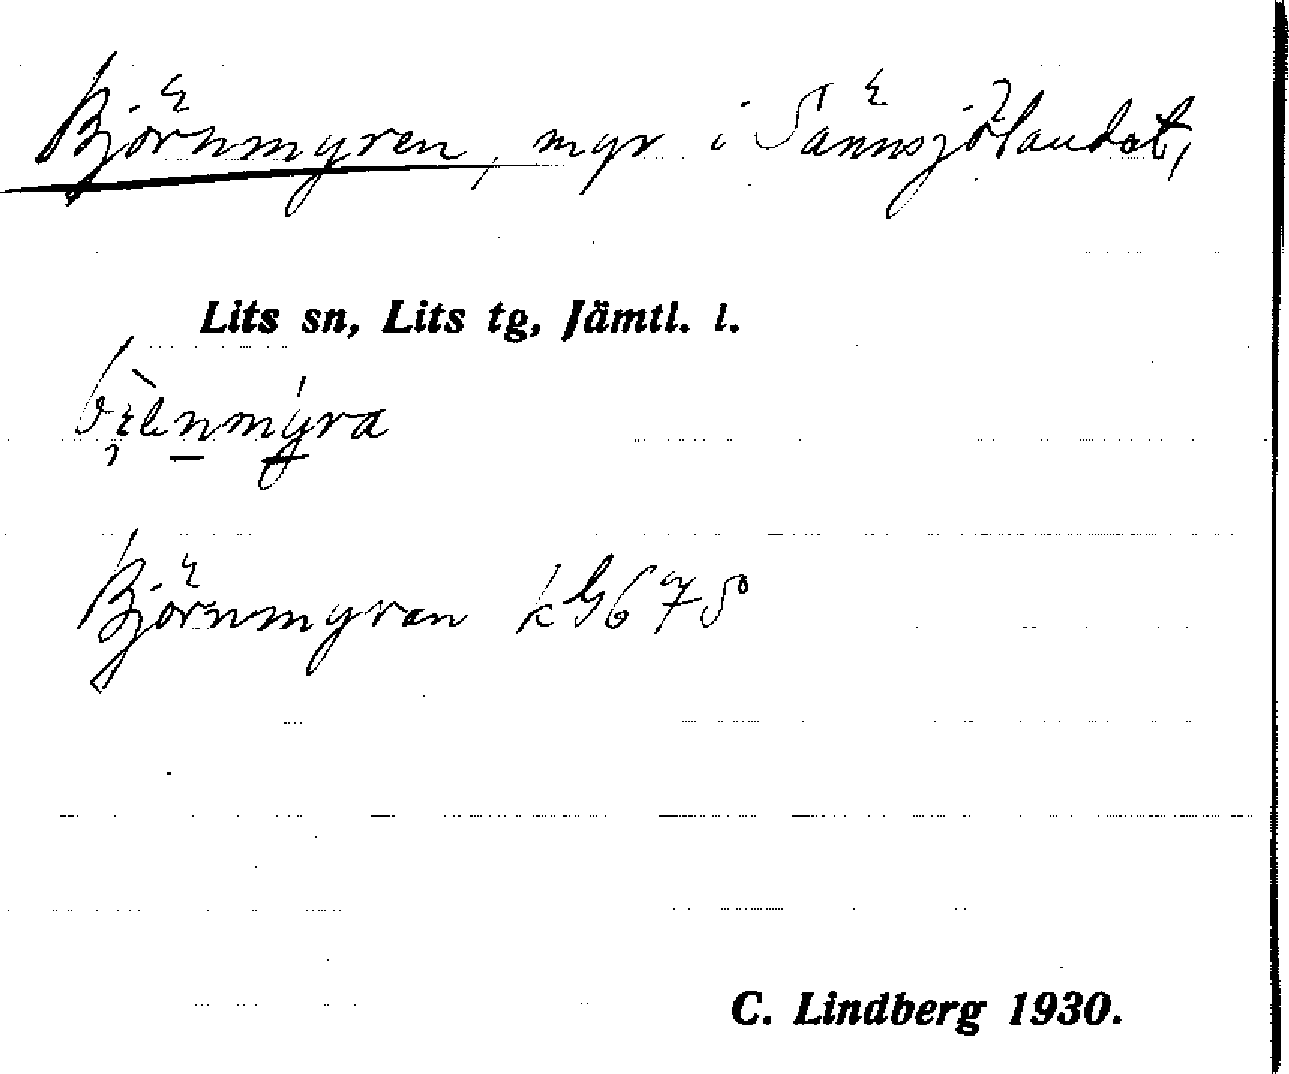 Björnmyren, myr i Sännsjölandet,
Lits sn, Lits tg, Jämtl. l.
Björnmyren
C. Lindberg 1930.